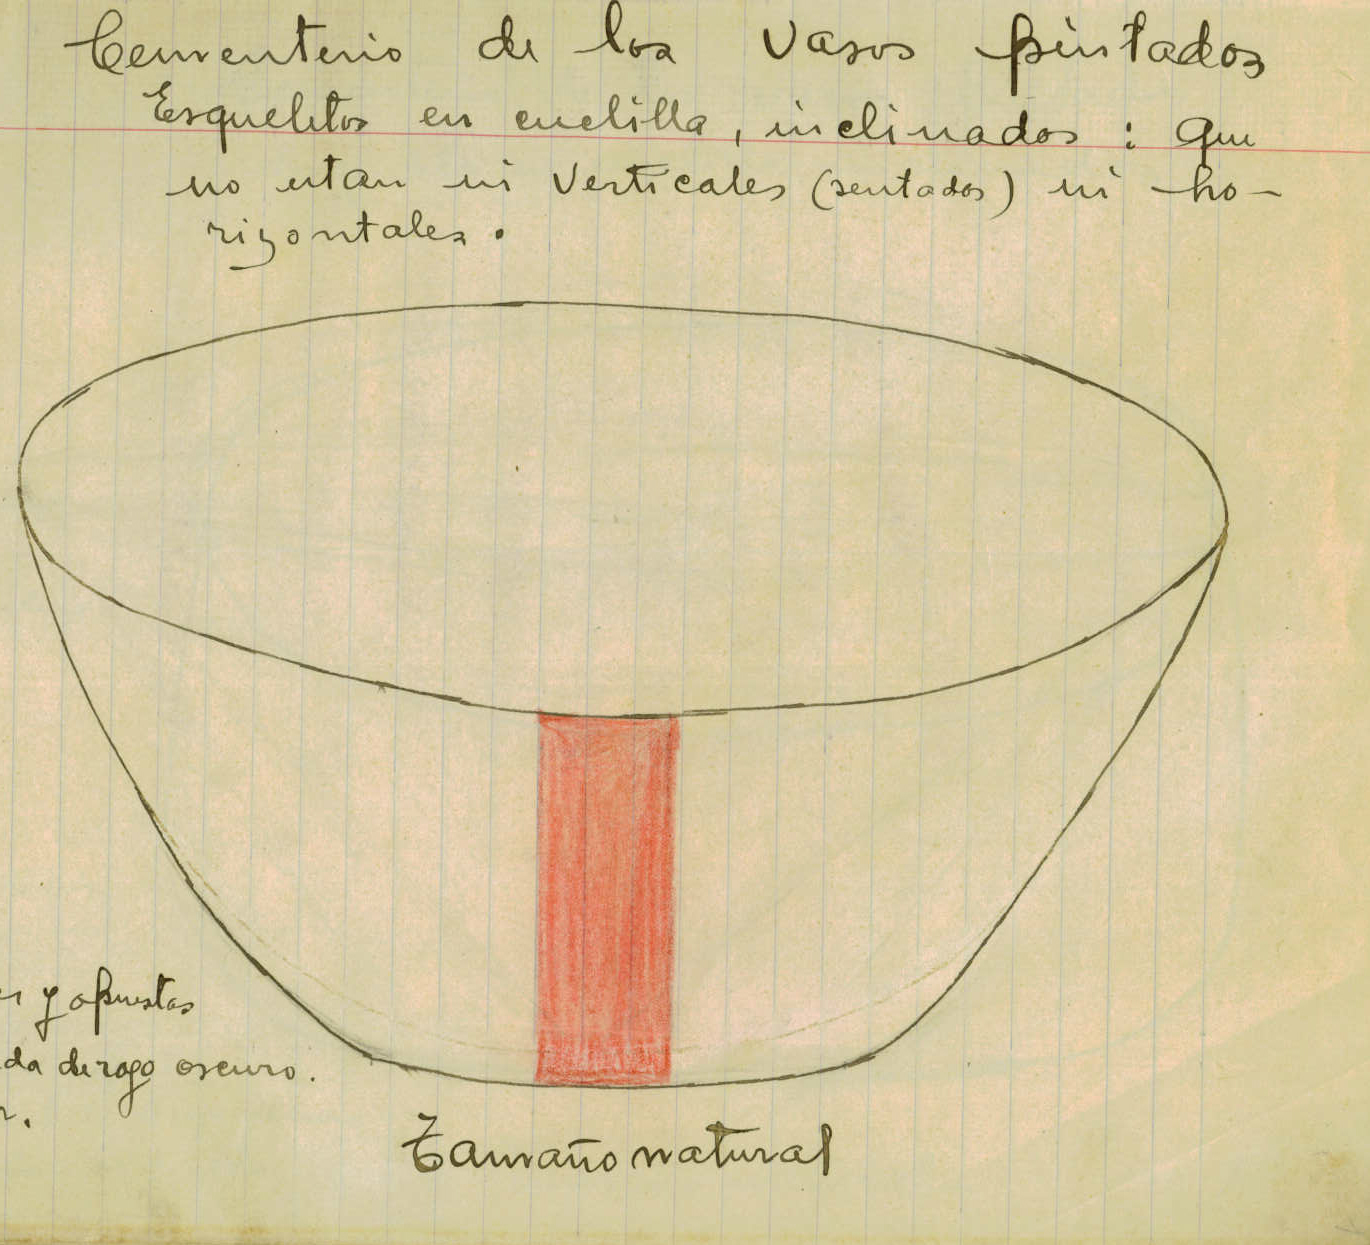 Cementerio de los vasos pintados
Esqueletos en cuclilla, inclinados: que
no estan ni verticales (sentados) ni ho-
rizontales.
y opuestas
da de rojo oscuro.
Tamaño natural